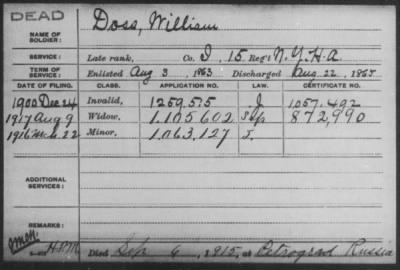 DEAD
NAME OF SOLDIER: Doss, William
SERVICE: Late rank, Co. I, 15 Reg't N.Y.H.A.
TERM OF SERVICE: Enlisted Aug 3, 1863 Discharged Aug. 22, 1865
DATE OF FILING. CLASS. APPLICATION NO. LAW. CERTIFICATE NO.
1900 Dec 24 Invalid, 1259,515 J 1057,492
1917 Aug 9 Widow, 1.105602 872,990
1916 22 Minor, 1.063,127 J.
ADDITIONAL SERVICES:
REMARKS:
Died Sep 6, 1915, at Petrograd Russia